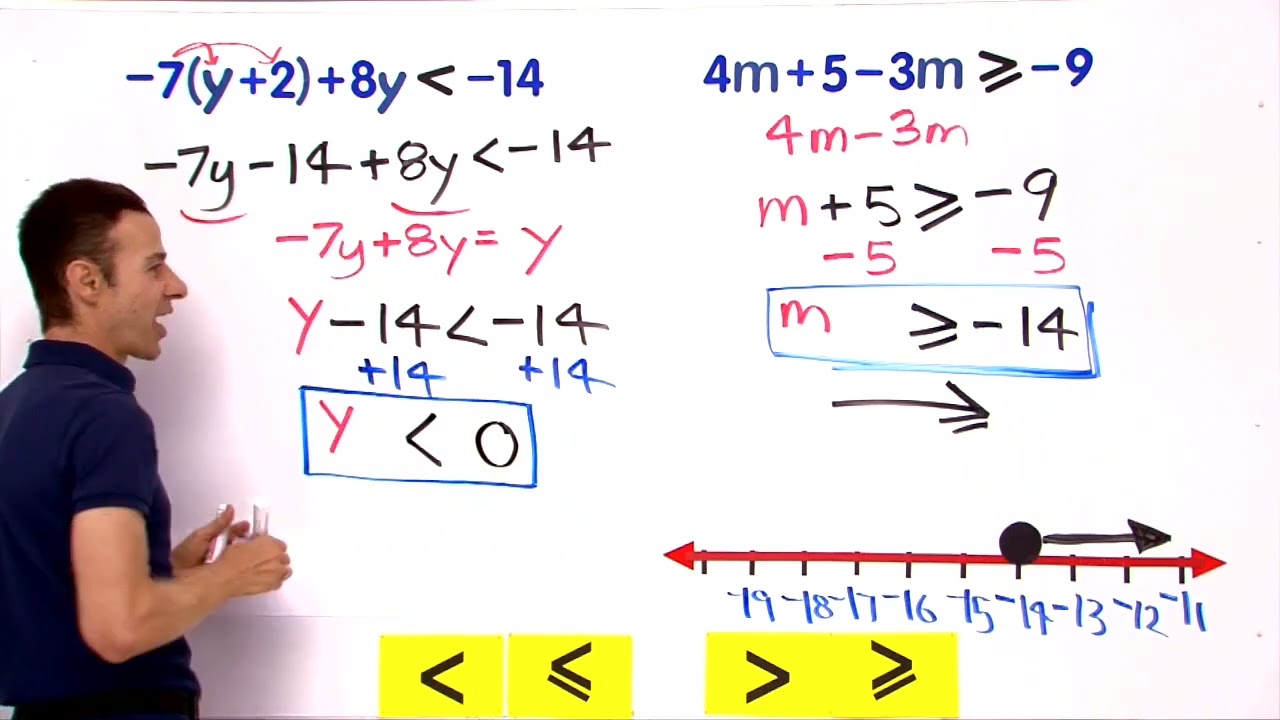 -7(y+2)+8y < -14
-7y-14+8y<-14
-7y+8y= y
y-14<-14
+14 +14
y < 0
4m+5-3m ≥ -9
4m-3m
m+5≥-9
-5 -5
m ≥-14
-19 -18 -17 -16 -15 -14 -13 -12 -11
< ≤ > ≥